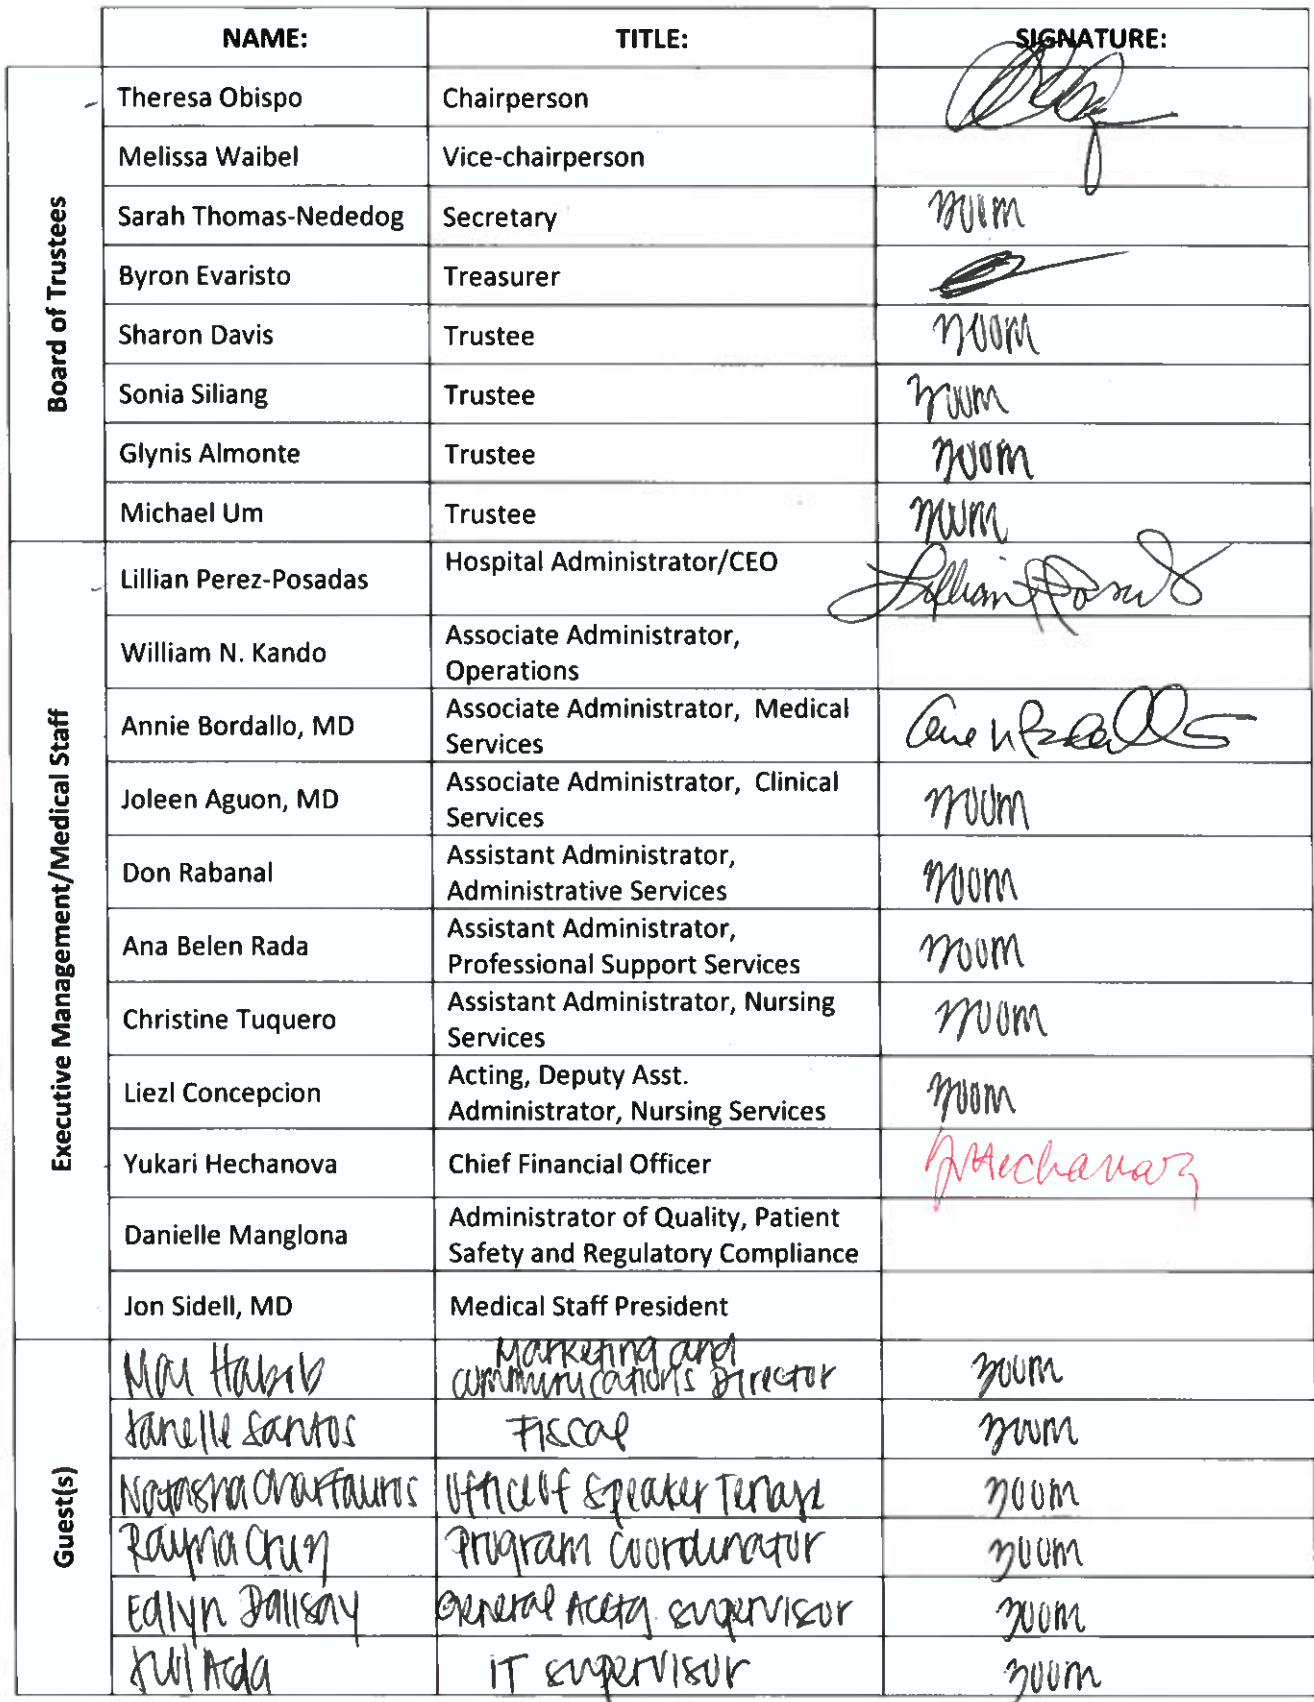 NAME: TITLE: SIGNATURE:
Board of Trustees
Theresa Obispo Chairperson
Melissa Waibel Vice-chairperson
Sarah Thomas-Nededog Secretary zoom
Byron Evaristo Treasurer
Sharon Davis Trustee zoom
Sonia Siliang Trustee zoom
Glynis Almonte Trustee zoom
Michael Um Trustee zoom
Executive Management/Medical Staff
Lillian Perez-Posadas Hospital Administrator/CEO Lillian
William N. Kando Associate Administrator,
Operations
Annie Bordallo, MD Associate Administrator, Medical
Services
Joleen Aguon, MD Associate Administrator, Clinical
Services zoom
Don Rabanal Assistant Administrator,
Administrative Services zoom
Ana Belen Rada Assistant Administrator,
Professional Support Services zoom
Christine Tuquero Assistant Administrator, Nursing
Services zoom
Liezl Concepcion Acting, Deputy Asst.
Administrator, Nursing Services zoom
Yukari Hechanova Chief Financial Officer YHechanova
Danielle Manglona Administrator of Quality, Patient
Safety and Regulatory Compliance
Jon Sidell, MD Medical Staff President
Guest(s)
Mai Habib Marketing and
Communications Director zoom
Janelle Santos Fiscal zoom
Natasha Charfauros Office of Speaker Terlaje zoom
Rayna Cruz Program Coordinator zoom
Edlyn Dalisay General Acctg. Supervisor zoom
Ada IT Supervisor zoom